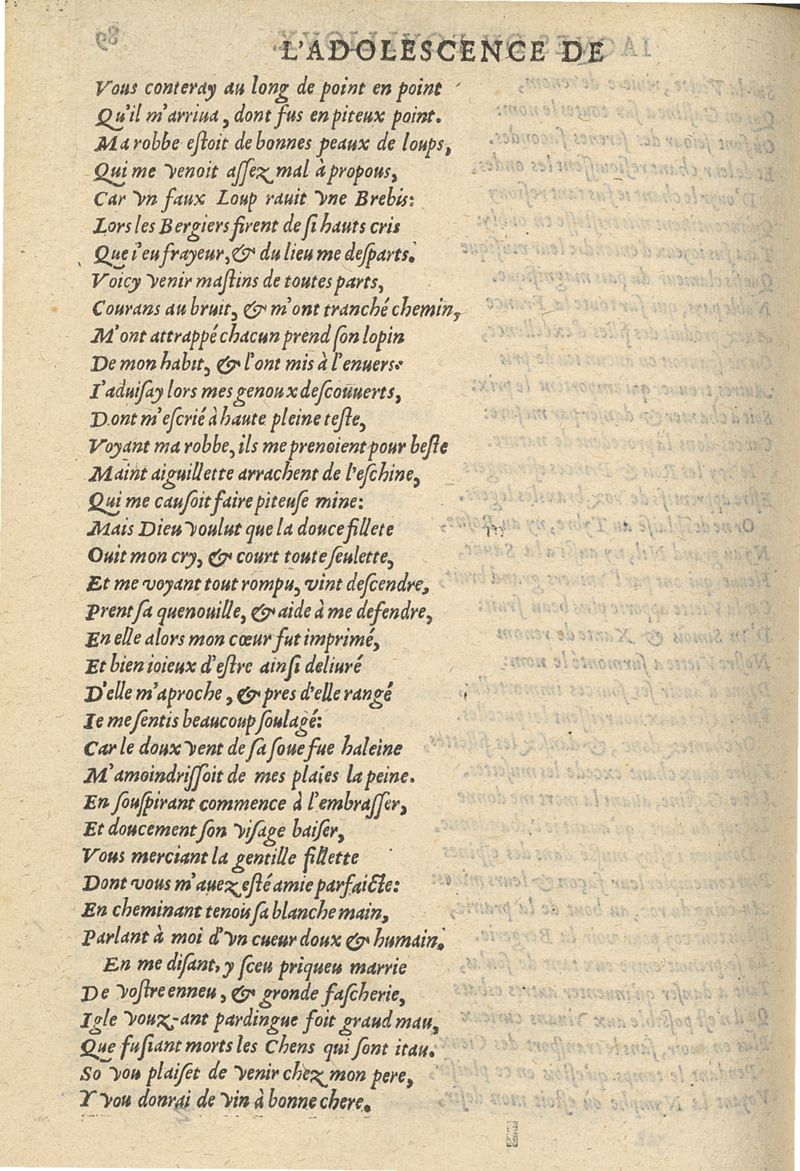 L'ADOLESCENCE DE
Vous conteray au long de point en point
Qu'il m'arriua, dont fus en piteux point.
Ma robbe eſtoit de bonnes peaux de loups,
Qui me venoit aſſez mal à propous,
Car vn faux Loup rauit vne Brebis:
Lors les Bergiers firent de ſi hauts cris
Que i'eu frayeur, & du lieu me deſparts.
Voicy venir maſtins de toutes parts,
Courans au bruit, & m'ont tranché chemin,
M'ont attrappé chacun prend ſon lopin
De mon habit, & l'ont mis à l'enuers.
I'aduiſay lors mes genoux deſcouuerts,
Dont m'eſcrié à haute pleine teſte,
Voyant ma robbe, ils me prenoient pour beſte
Maint aiguillette arrachent de l'eſchine,
Qui me cauſoit faire piteuſe mine:
Mais Dieu voulut que la douce fillete
Ouit mon cry, & court toute ſeulette,
Et me voyant tout rompu, vint deſcendre,
Prent ſa quenouille, & aide à me defendre,
En elle alors mon cœur fut imprimé,
Et bien ioieux d'eſtre ainſi deliuré
D'elle m'aproche, & pres d'elle rangé
Ie me ſentis beaucoup ſoulagé:
Car le doux vent de ſa ſoueſue haleine
M'amoindriſſoit de mes plaies la peine.
En ſouſpirant commence à l'embraſſer,
Et doucement ſon viſage baiſer,
Vous merciant la gentille fillette
Dont vous m'auez eſté amie parfaicte:
En cheminant tenou ſa blanche main,
Parlant à moi d'vn cueur doux & humain.
En me diſant, y ſceu priqueu marrie
De voſtre enneu, & gronde faſcherie,
Igle vouz-ant pardingue foit graud mau,
Que fuſiant morts les Chens qui ſont itau.
So vou plaiſet de venir chez mon pere,
Y vou donrai de vin à bonne chere.